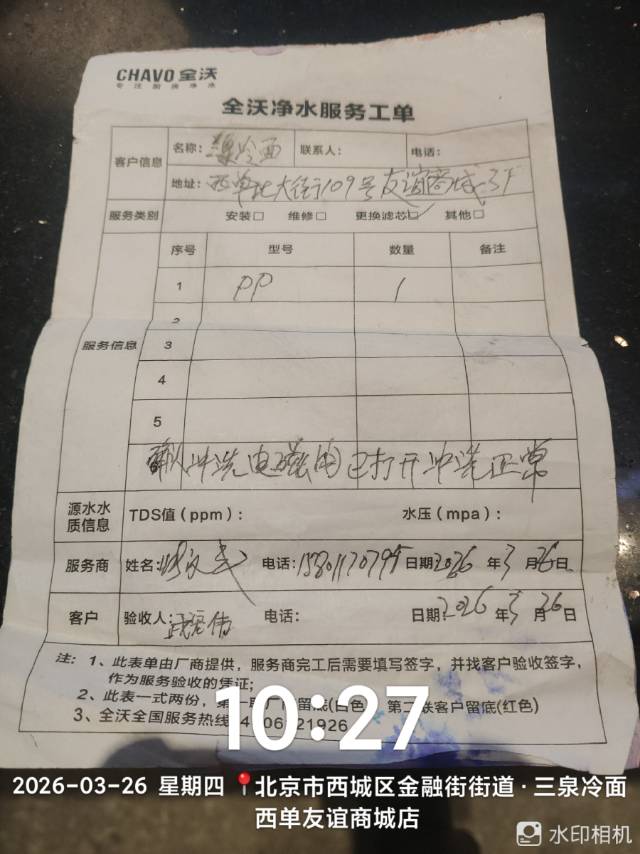 CHAVO 全沃
专注厨房净水
全沃净水服务工单
客户信息
名称:
联系人:
电话:
地址: 西单北大街109号友谊商城3F
服务类别
安装□ 维修□ 更换滤芯☑ 其他□
服务信息
序号 型号 数量 备注
1 PP 1
2
3
4
5
冲洗电磁阀已打开冲洗正常
源水水质信息
TDS值(ppm): 水压(mpa):
服务商 姓名: 电话: 日期2026年3月26日
客户 验收人: 电话: 日期:2026年3月26日
注: 1、此表单由厂商提供,服务商完工后需要填写签字,并找客户验收签字,
作为服务验收的凭证;
2、此表一式两份,第一联厂商留底(白色),第二联客户留底(红色)
3、全沃全国服务热线
10:27
2026-03-26 星期四 北京市西城区金融街街道·三泉冷面
西单友谊商城店
水印相机